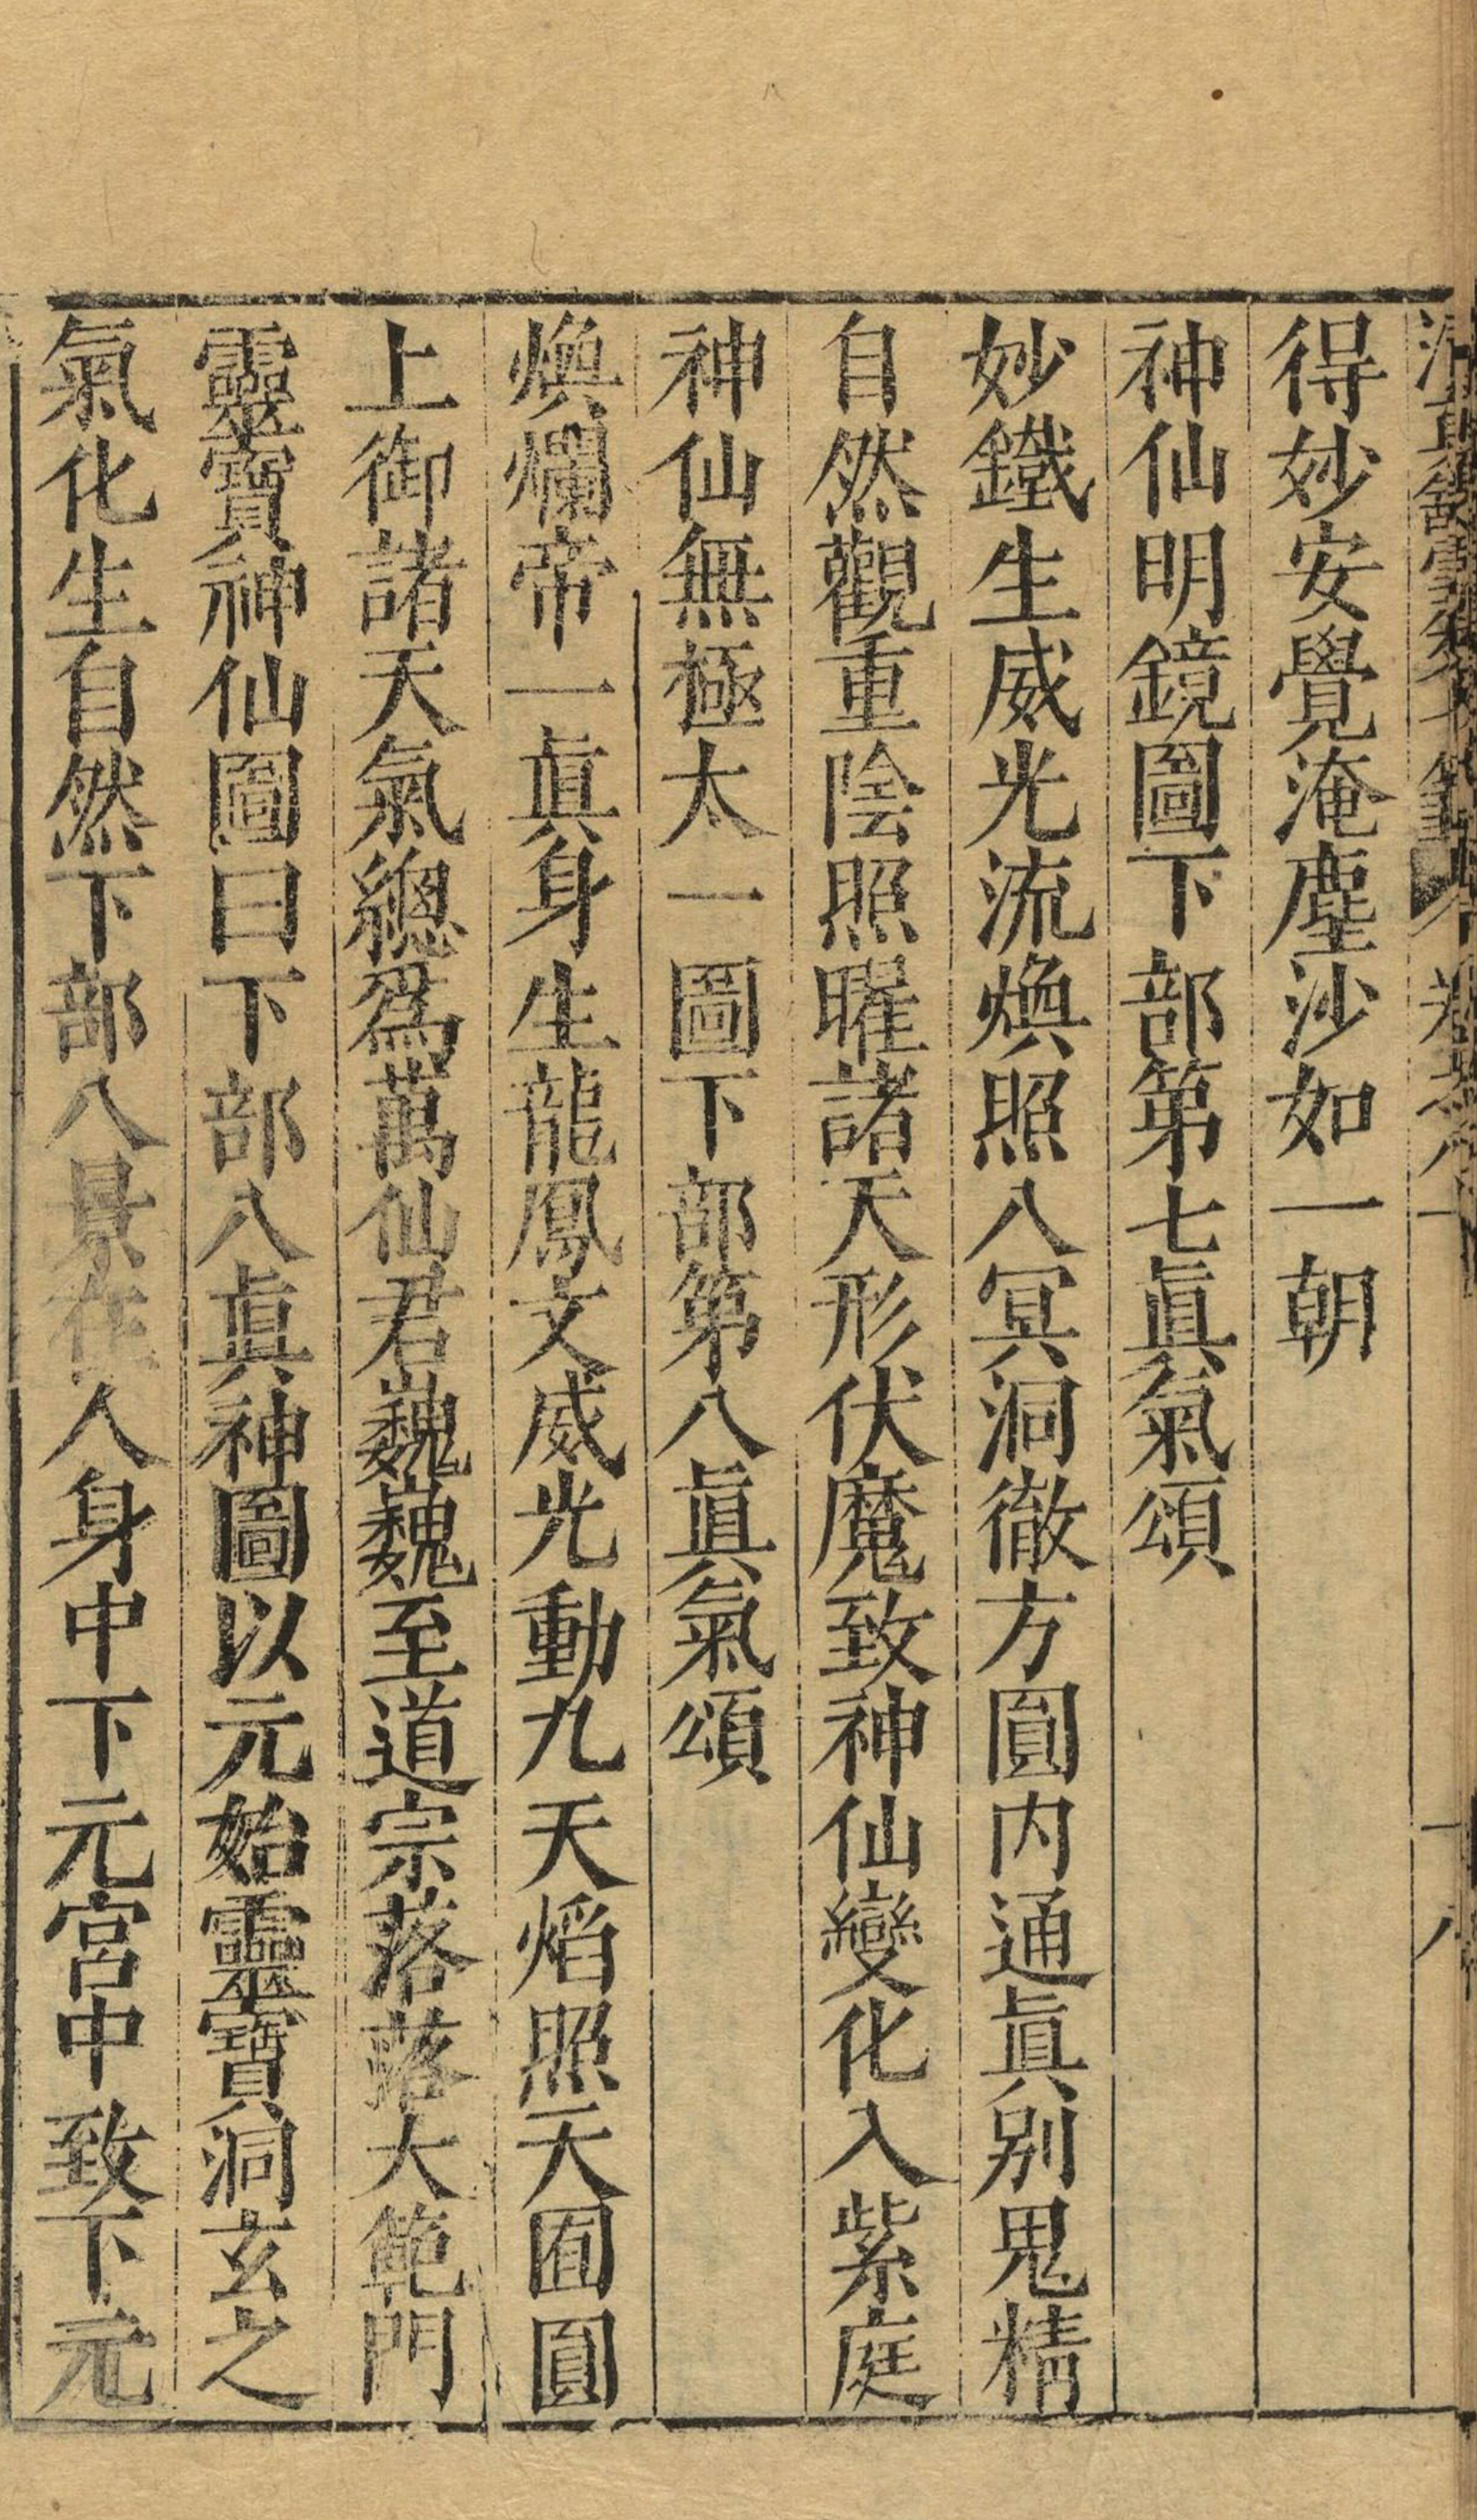 得妙安覺淹塵沙如一朝
神仙明鏡圖下部第七眞氣頌
妙鐵生威光流煥照八冥洞徹方圓内通眞別鬼精
自然觀重陰照曜諸天形伏魔致神仙變化入紫庭
神仙無極太一圖下部第八眞氣頌
煥爛帝一眞身生龍鳳文威光動九天熖照天囿圓
上御諸天氣總爲萬仙君巍巍至道宗落落大範門
靈寶神仙圖曰下部八眞神圖以元始靈寶洞玄之
氣化生自然下部八景在人身中下元宮中致下元